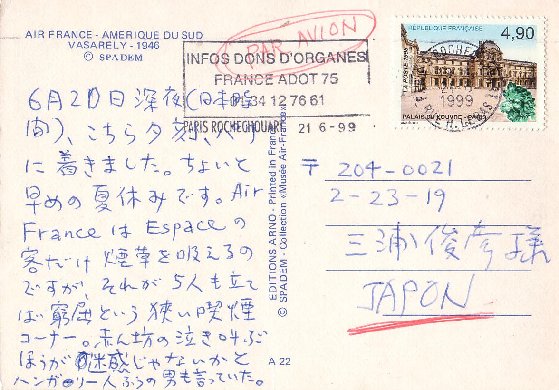 AIR FRANCE - AMERIQUE DU SUD
VASARELY - 1946
© SPADEM
PAR AVION
INFOS DONS D'ORGANES
FRANCE ADOT 75
34 12 76 61
PARIS ROCHECHOUARE 21 6-99
RÉPUBLIQUE FRANÇAISE
4,90
LA POSTE 1998
1999
PALAIS DU LOUVRE - PARIS
6月20日 深夜(日本時
間)、こちら夕刻、パリ
に着きました。ちょいと
早めの夏休みです。Air
France は Espace の
客だけ煙草を吸えるの
ですが、それが5人も立て
ば窮屈という狭い喫煙
コーナー。赤ん坊の泣き叫ぶ
ほうが迷惑じゃないかと
ハンガリー人ふうの男も言っていた。
EDITIONS ARNO - Printed in France
© SPADEM - Collection «Musée Air-France»
A 22
〒204-0021
2-23-19
三浦俊彦様
JAPON